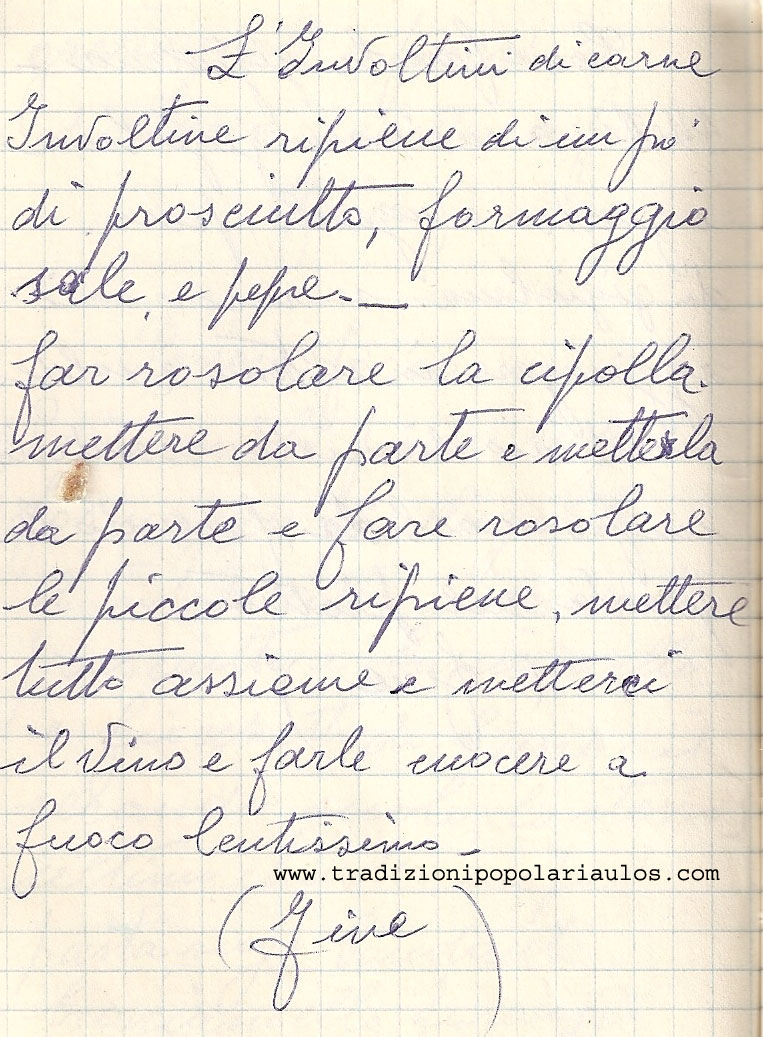 L'Involtini di carne
Involtine ripiene di un pò
di prosciutto, formaggio
sale, e pepe.—
far rosolare la cipolla.
mettere da parte e metterla
da parte e fare rosolare
le piccole ripiene, mettere
tutto assieme e metterci
il vino e farle cuocere a
fuoco lentissimo -
www.tradizionipopolariaulos.com
(Fine)